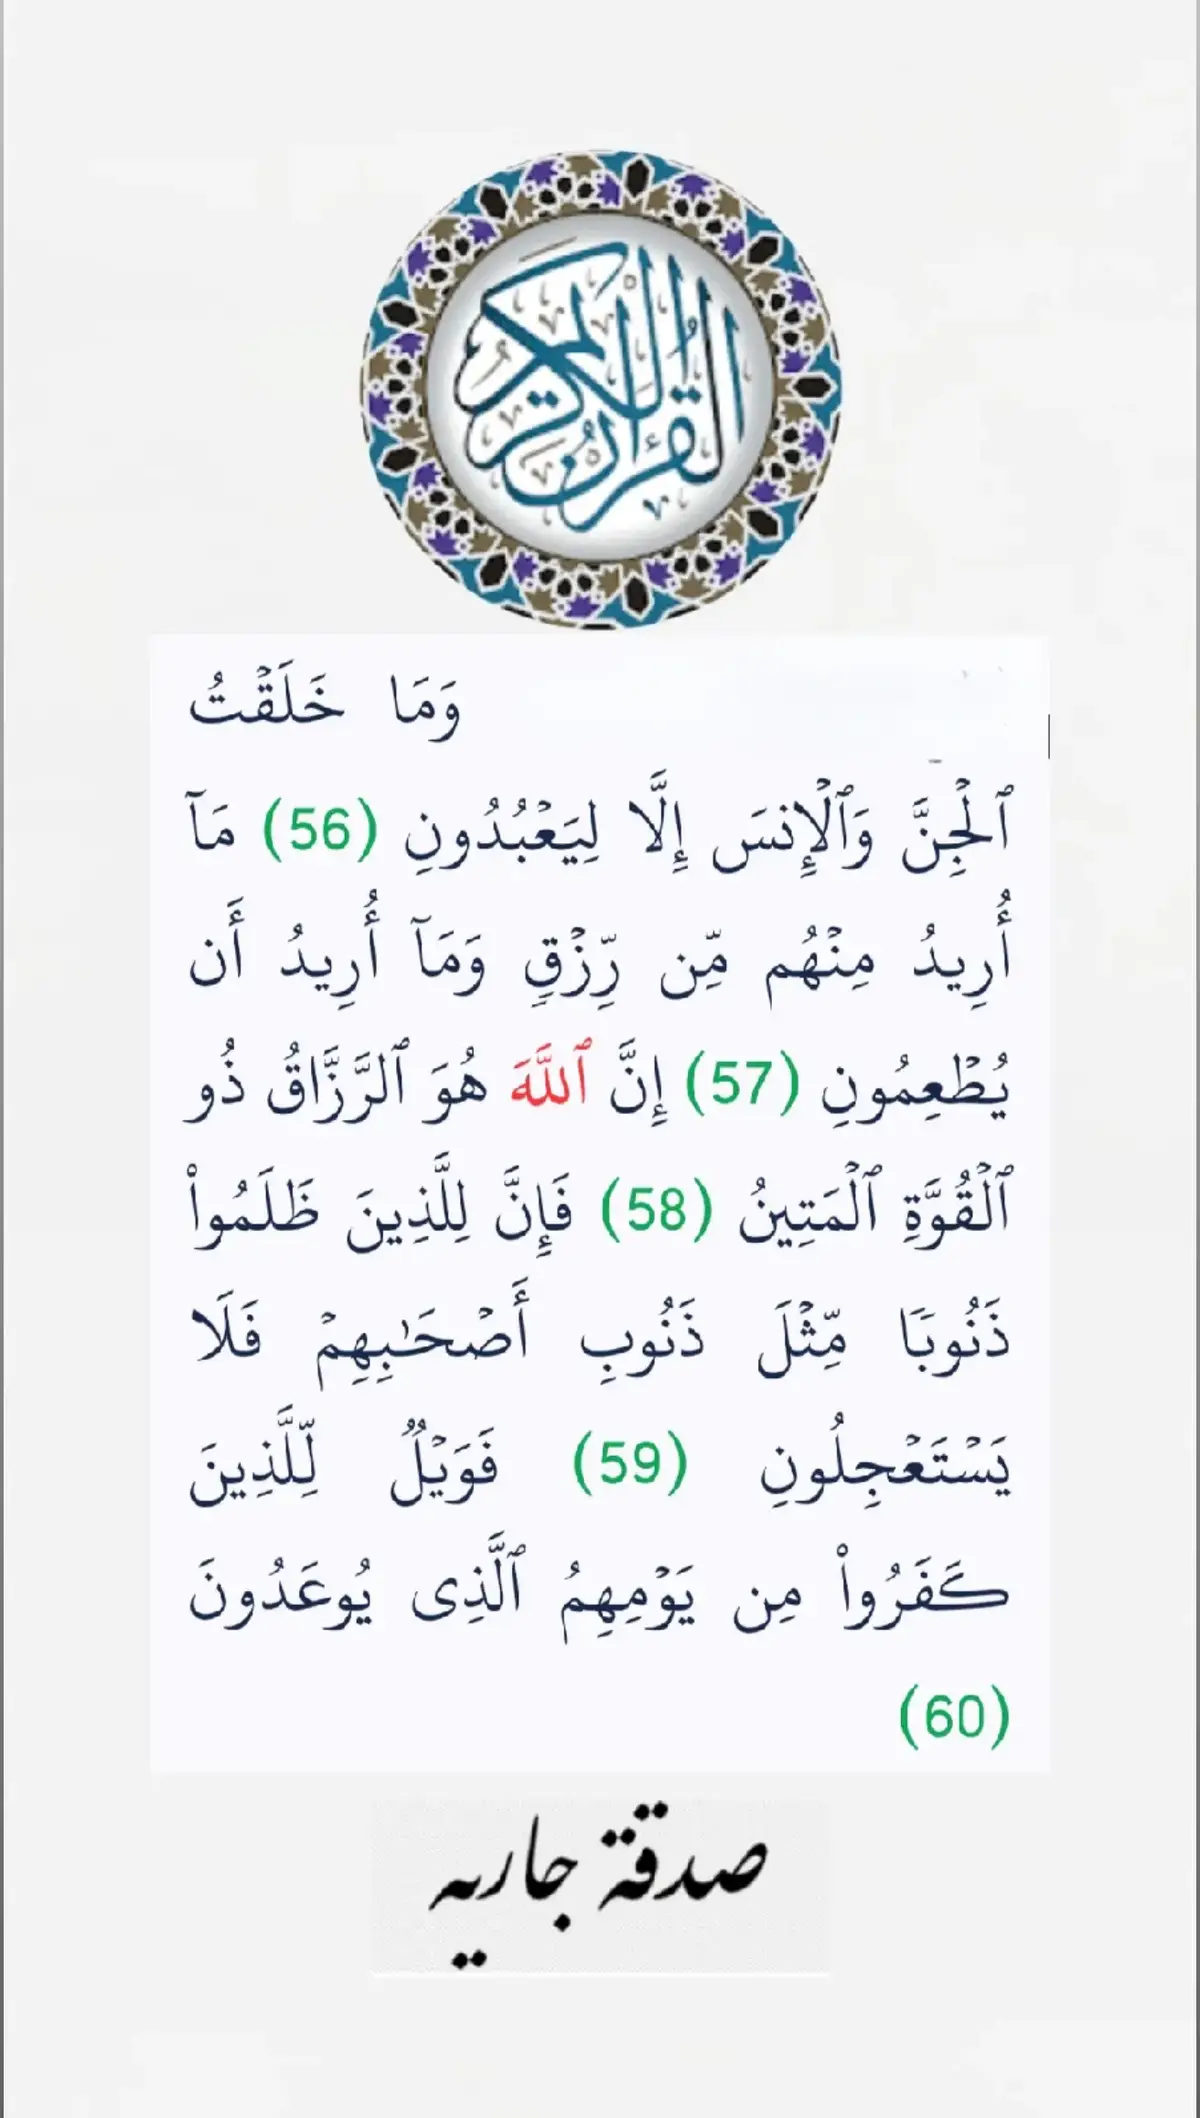 القرآن الكريم
وَمَا خَلَقۡتُ
ٱلۡجِنَّ وَٱلۡإِنسَ إِلَّا لِيَعۡبُدُونِ (56) مَآ
أُرِيدُ مِنۡهُم مِّن رِّزۡقٖ وَمَآ أُرِيدُ أَن
يُطۡعِمُونِ (57) إِنَّ ٱللَّهَ هُوَ ٱلرَّزَّاقُ ذُو
ٱلۡقُوَّةِ ٱلۡمَتِينُ (58) فَإِنَّ لِلَّذِينَ ظَلَمُواْ
ذَنُوبٗا مِّثۡلَ ذَنُوبِ أَصۡحَٰبِهِمۡ فَلَا
يَسۡتَعۡجِلُونِ (59) فَوَيۡلٞ لِّلَّذِينَ
كَفَرُواْ مِن يَوۡمِهِمُ ٱلَّذِى يُوعَدُونَ
(60)
صدقة جاريه